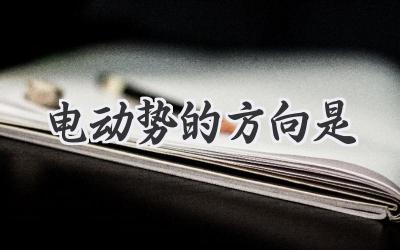 电动势的方向是